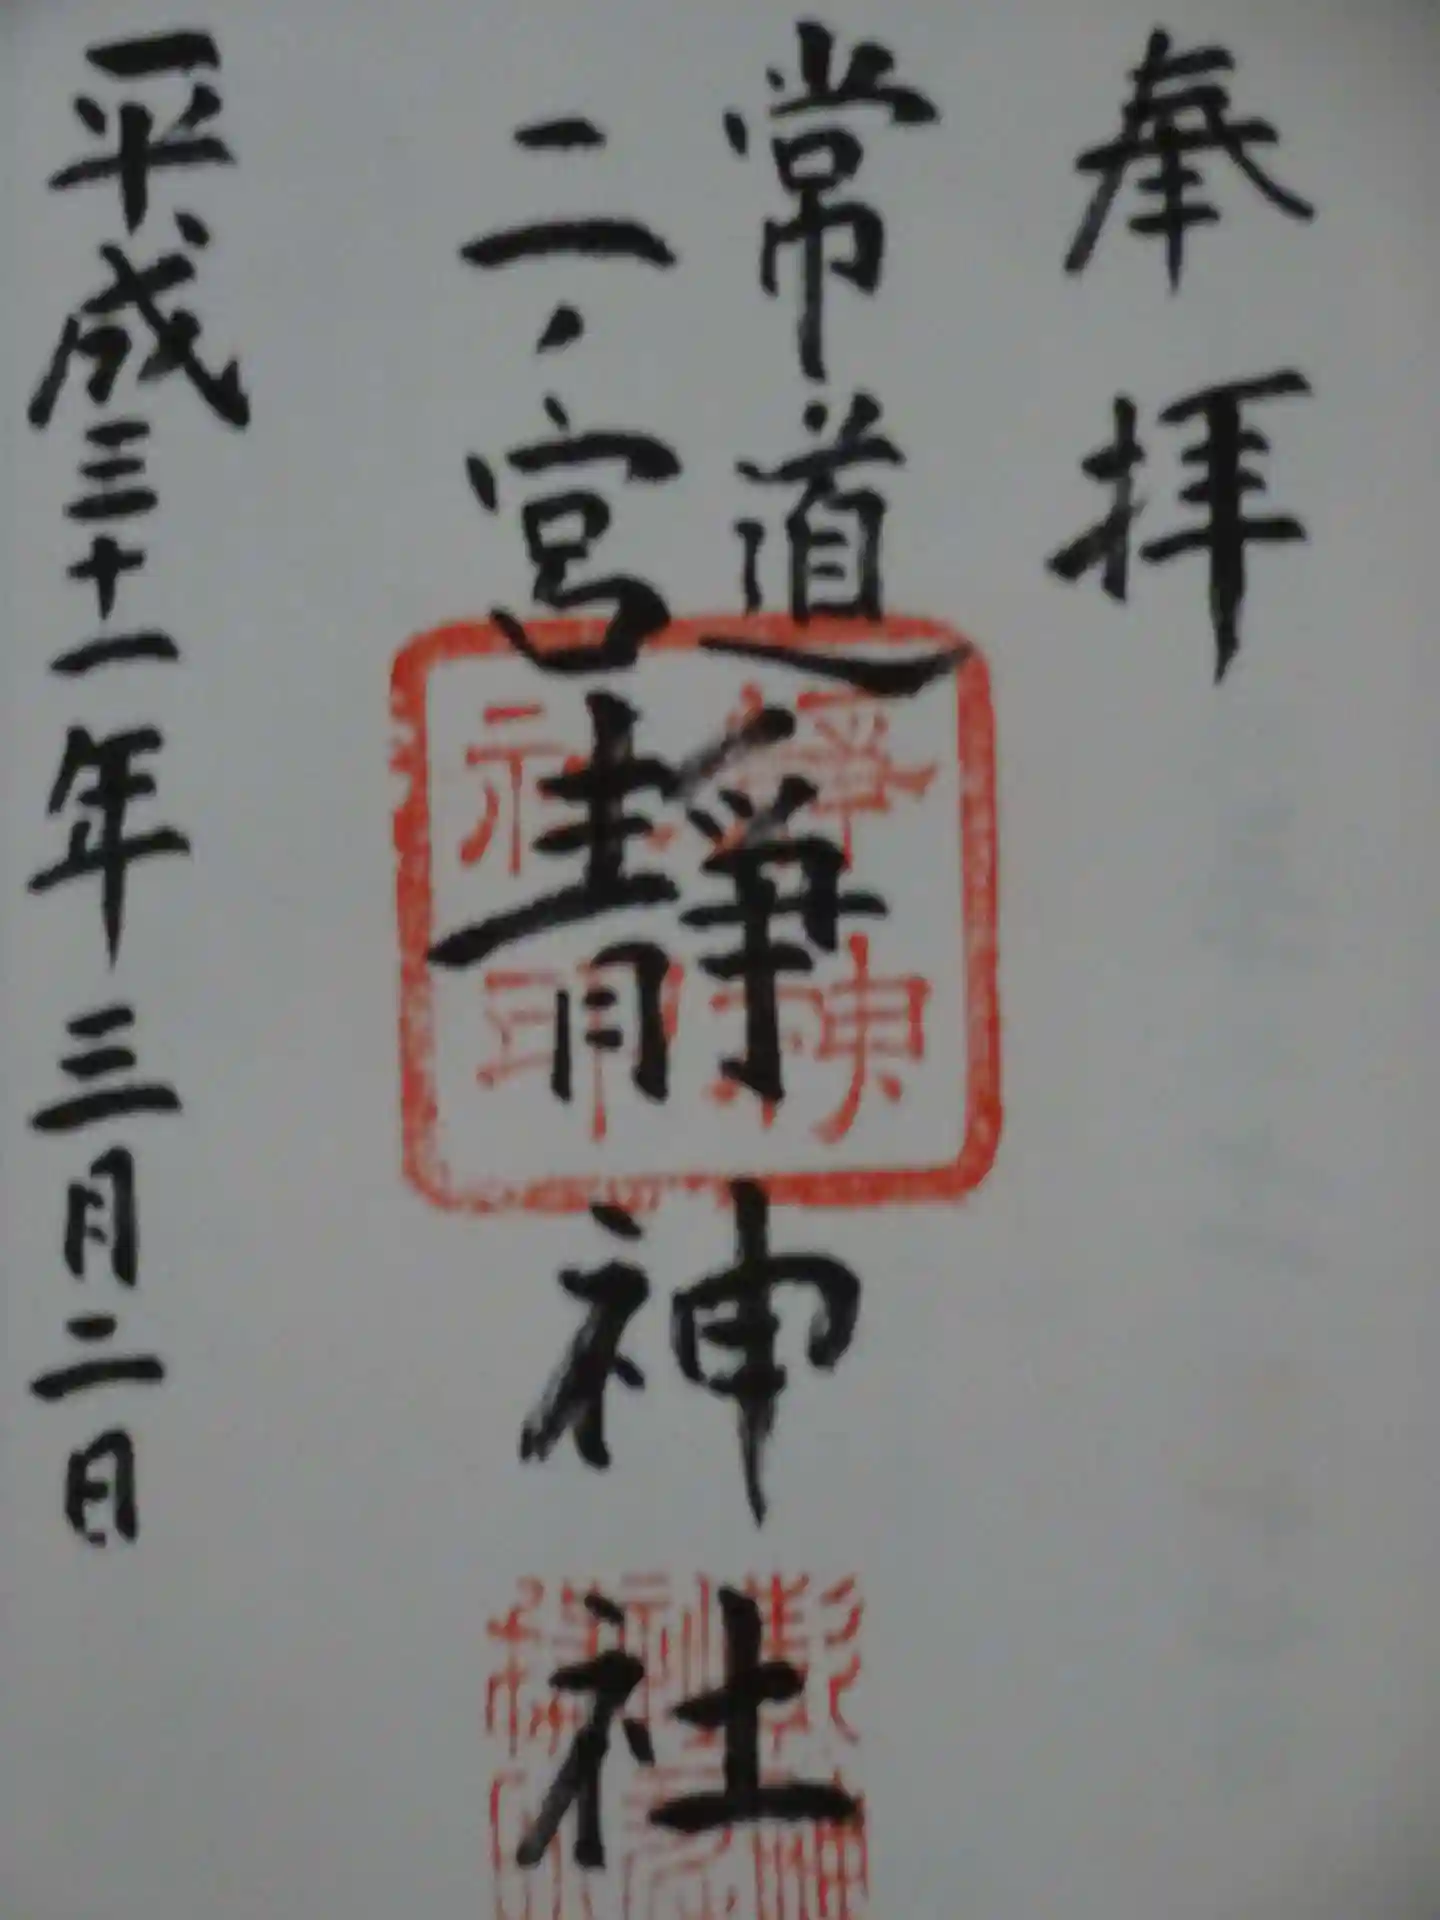 奉拝
常道
二ノ宮
靜神社
靜神
社印
平成三十一年三月二日